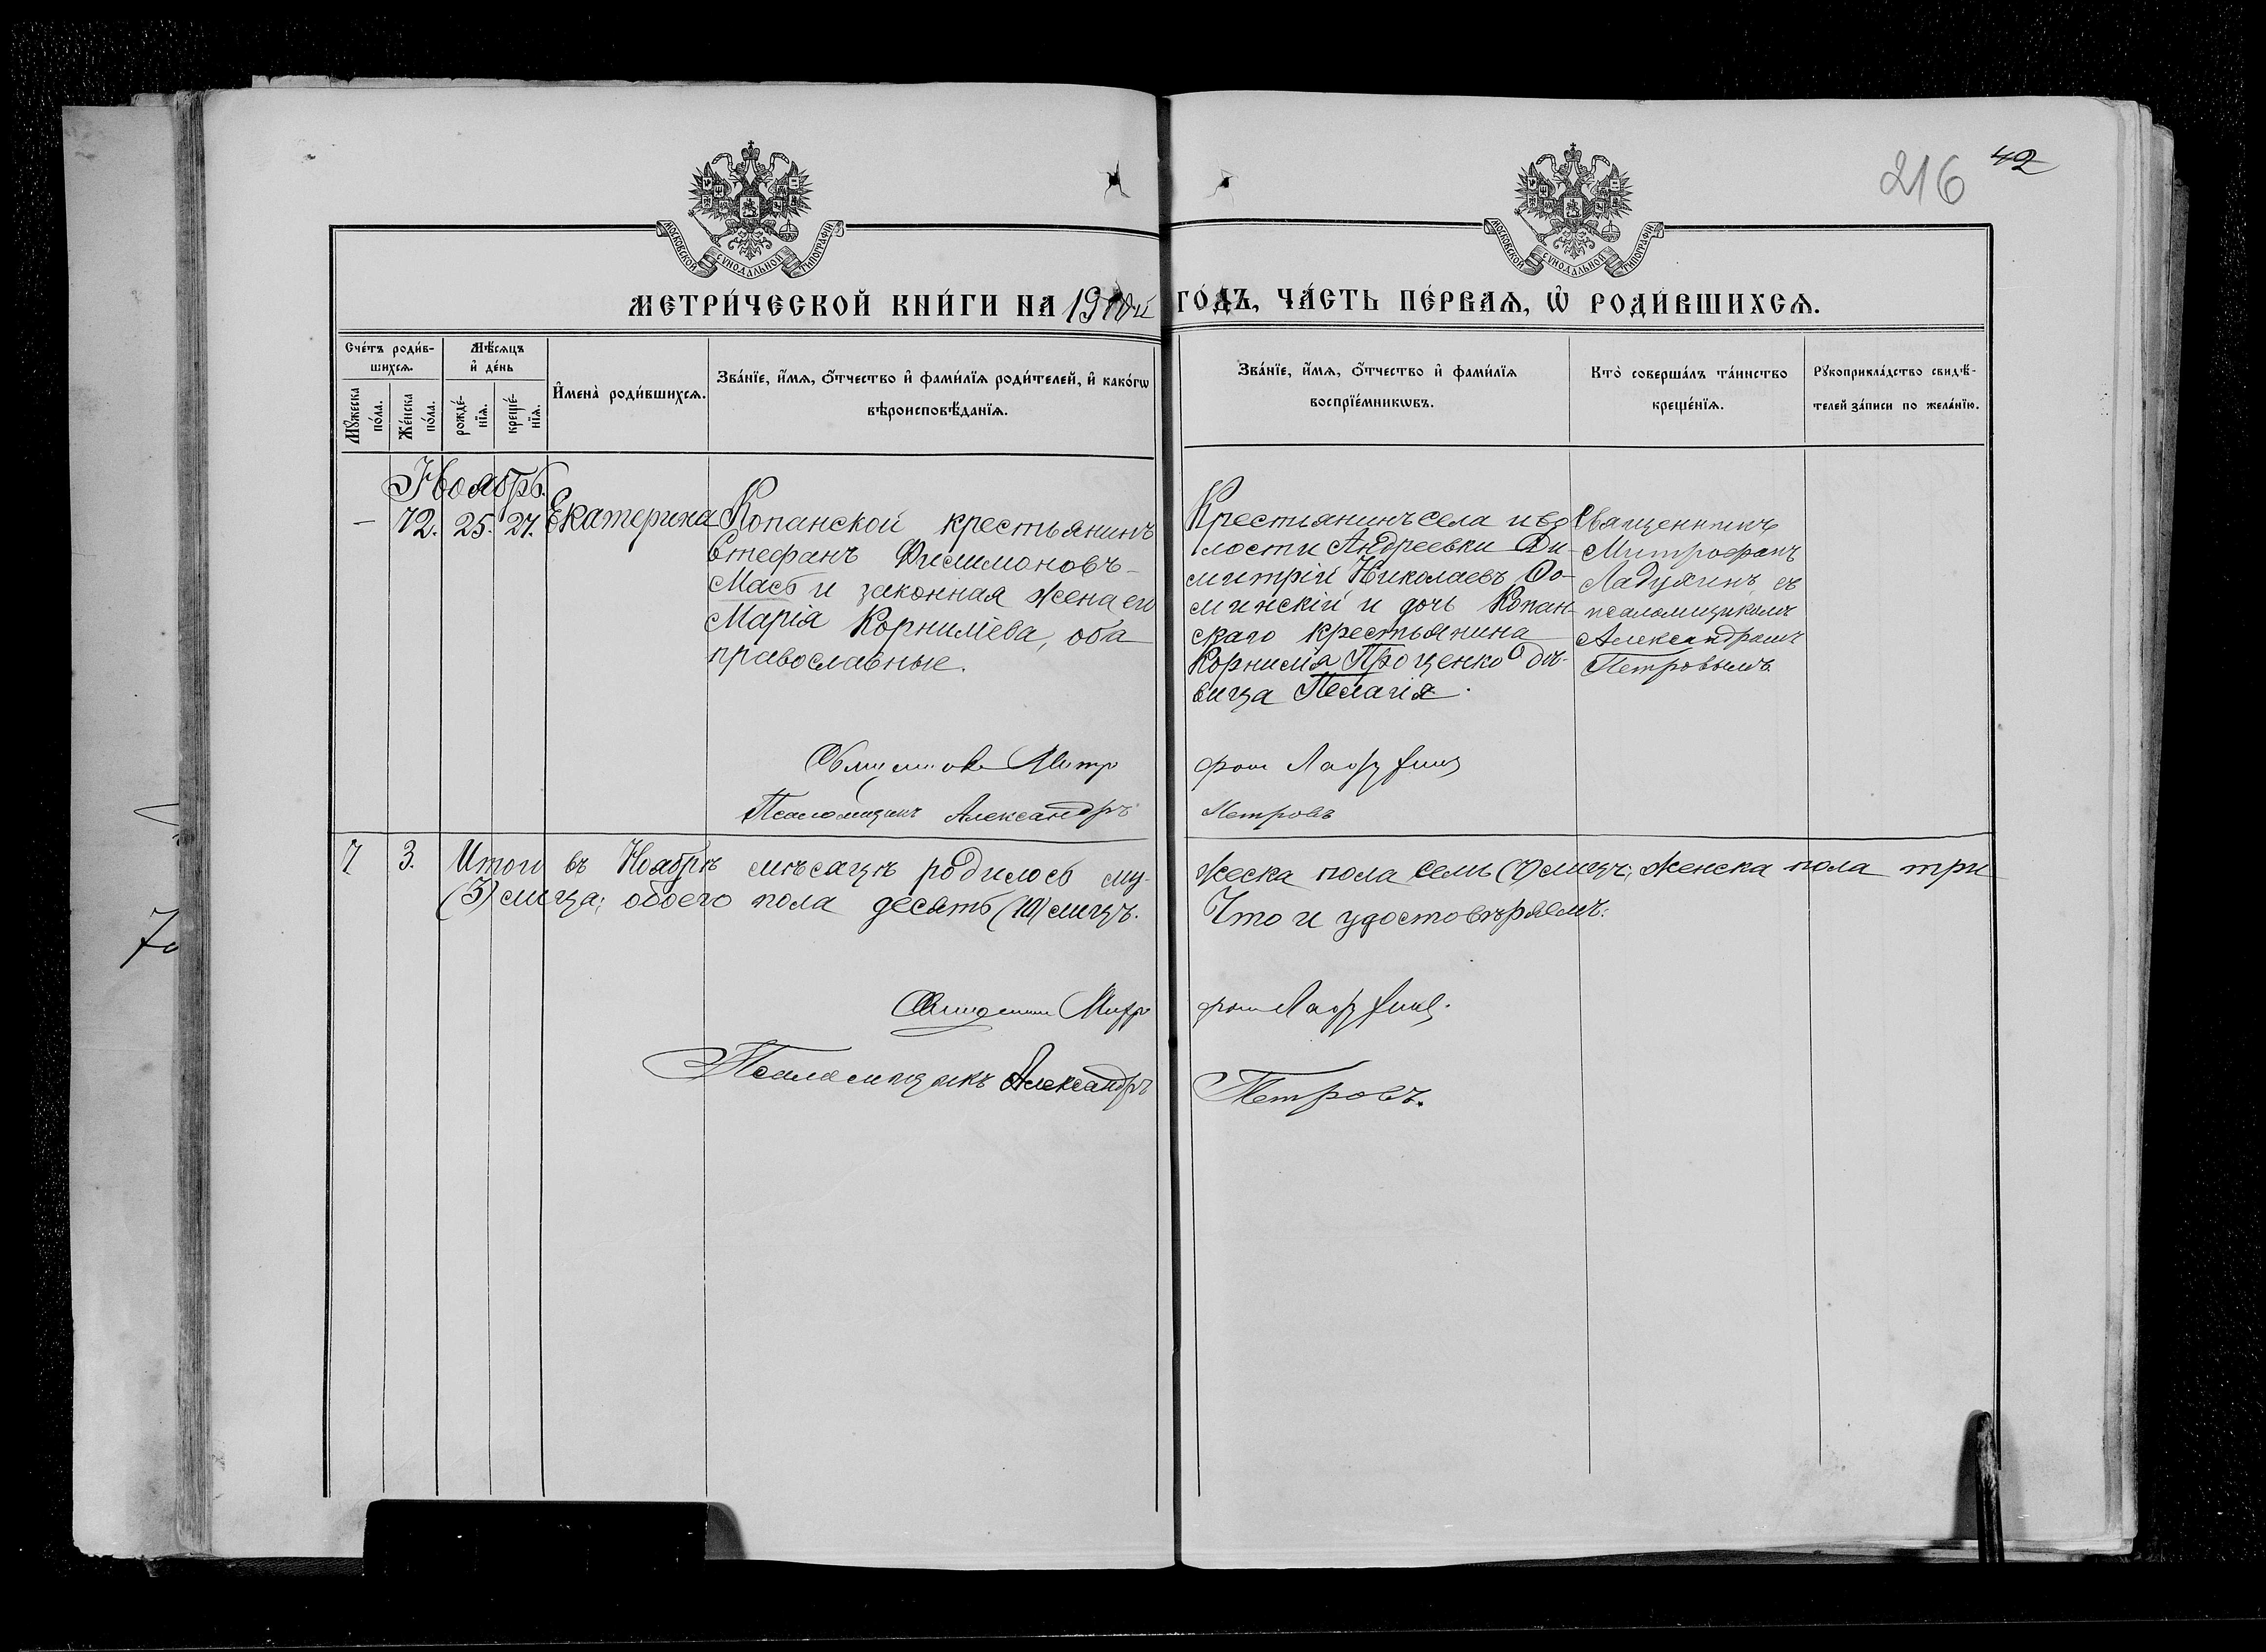 216 42
МОСКОВСКОЙ СѴНОДАЛЬНОЙ ТИПОГРАФІИ
МОСКОВСКОЙ СѴНОДАЛЬНОЙ ТИПОГРАФІИ
МЕТРИ́ЧЕСКОЙ КНИ́ГИ НА 1910й ГО́ДЪ, ЧА́СТЬ ПЕ́РВАЯ, Ѡ҆ РОДИ́ВШИХСѦ.
Сче́тъ роди́в-
шихсѧ.
Мꙋжеска по́ла.
Же́нска по́ла.
Мѣ́сѧцъ
и҆ де́нь
рожде́-
нїѧ.
креще́-
нїѧ.
И҆мена̀ роди́вшихсѧ.
Зва́нїе, и҆́мѧ, ѻ҆́тчество и҆ фами́лїѧ роди́телей, и҆ како́гѡ
вѣроисповѣ́данїѧ.
Зва́нїе, и҆́мѧ, ѻ҆́тчество и҆ фами́лїѧ
воспрїе́мникѡвъ.
Кто̀ соверша́лъ та́инство
креще́нїѧ.
Рꙋкоприкла́дство свидѣ́-
телей за́писи по жела́нїю.
Ноябрь.
— 72. 25. 27. Екатерина
Копанской крестьянинъ
Стефанъ Филимоновъ
Мась и законная жена его
Марія Корниліева, оба
православные.
Крестьянинъ села и во-
лости Андреевки Ди-
митрій Николаевъ Фо-
минскій и дочь Копан-
скаго крестьянина
Корнилія Проценко дѣ-
вица Пелагія.
Священникъ
Митрофанъ
Ладухинъ съ
псаломщикомъ
Александромъ
Петровымъ.
Священникъ Митрофанъ Ладухинъ
Псаломщикъ Александръ Петровъ
7 3. Итого въ Ноябрѣ мѣсяцѣ родилось му-жеска пола семь (7) лицъ; женска пола три
(3) лица; обоего пола десять (10) лицъ. Что и удостовѣряемъ:
Священникъ Митрофанъ Ладухинъ.
Псаломщикъ Александръ Петровъ.